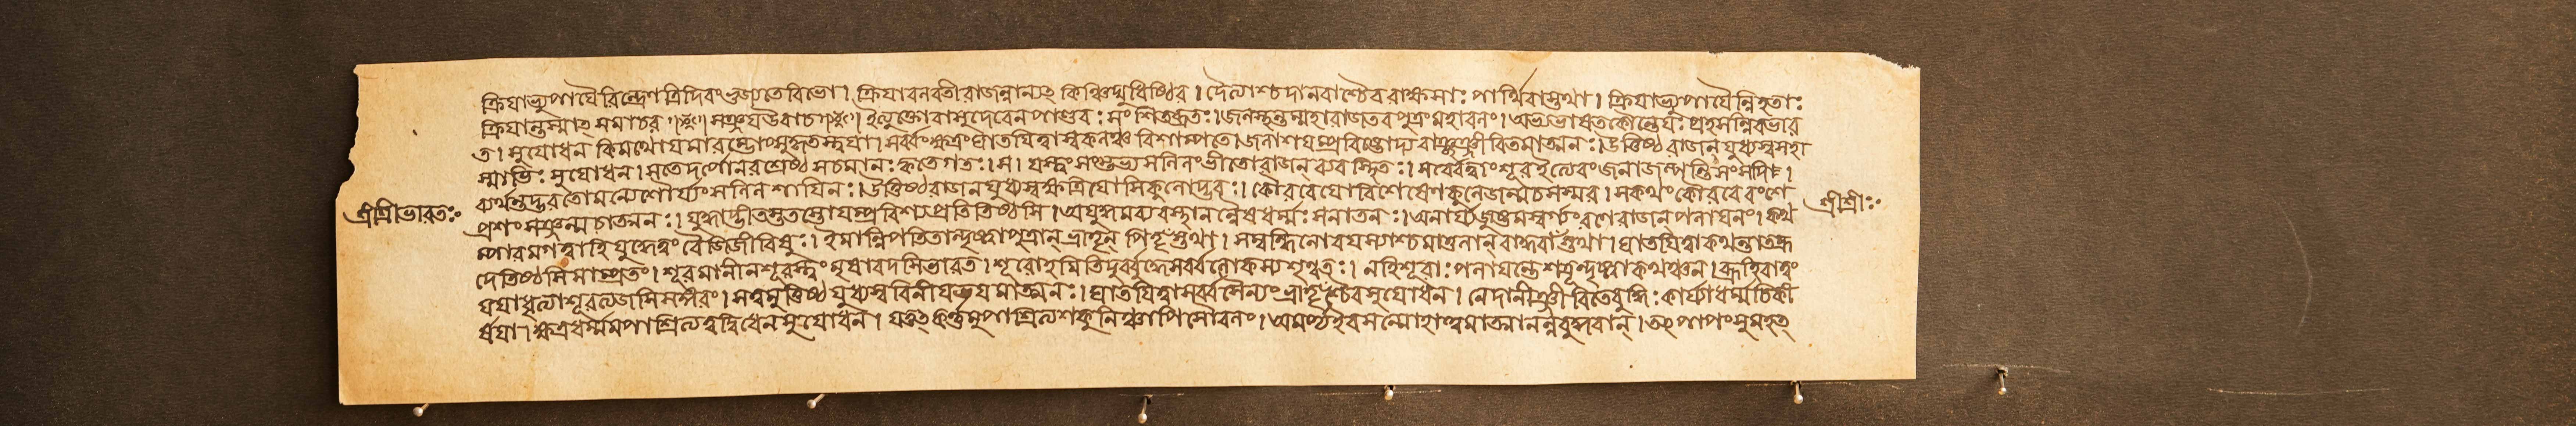 ক্রিয়াভ্যুপায়ৈরিন্দ্রেণ ত্রিদিবং ভুজ্যতে বিভো। ক্রিয়া বলবতী রাজন্নান্যৎ কিঞ্চিদ্যুধিষ্ঠির। দৈত্যাশ্চ দানবাশ্চৈব রাক্ষসাঃ পার্থিবাস্তথা। ক্রিয়াভ্যুপায়ৈর্ন্নিহতাঃ
ক্রিয়ান্তস্মাৎ সমাচর সঞ্জয় উবাচ ইত্যুক্তো বাসুদেবেন পাণ্ডবঃ সংশিতব্রতঃ। জলস্থন্তম্মহারাজ তব পুত্রং মহাবলং। অভ্যভাষত কৌন্তেয়ঃ প্রহসন্নিব ভার
ত। সুযোধন কিমর্থোয়মারম্ভো সর্ব্বং ক্ষত্রং ঘাতয়িত্বা স্বকুলঞ্চ বিশাম্পতে। জলাশয়ম্প্রবিষ্টোদ্য বাঞ্ছঞ্জীবিতমাত্মনঃ। উত্তিষ্ঠ রাজন্ যুধ্যস্ব সহা
স্মাভিঃ সুযোধন। স তে দর্পো নরশ্রেষ্ঠ স চ মানঃ ক্ক তে গতঃ। যস্ত্বং সংস্তভ্য সলিলং ভীতো রাজন্ ব্যবস্থিতঃ। সর্ব্বে ত্বাং শূর ইত্যেবং জনা জল্পন্তি সংসদি।
ব্যর্থন্তদ্ভবতো মন্যে শৌর্য্যং সলিলশায়িনঃ। উত্তিষ্ঠ রাজন্ যুধ্যস্ব ক্ষত্রিয়োসি কুলোদ্ভবঃ। কৌরবেয়ো বিশেষেণ কুলে জন্ম চ সংস্মর। স কথং কৌরবে বংশে
শ্রীশ্রীভারতঃ
শ্রীশ্রীঃ
প্রশংসঞ্জন্ম চাত্মনঃ। যুদ্ধাদ্ভীতস্ততস্তোয়ম্প্রবিশ্য প্রতিতিষ্ঠসি। অযুদ্ধমব্যবস্থানন্নৈষ ধর্ম্মঃ সনাতনঃ। অনার্য্যজুষ্টমস্বর্গ্যং রণে রাজন্ পলায়নং। কথ
ম্পারমগত্বা হি যুদ্ধে ত্বং বৈ জিজীবিষুঃ। ইমান্নিপতিতান্দৃষ্ট্বা পুত্রান্ ভ্রাতৄন্ পিতৄংস্তথা। সম্বন্ধিনো বয়স্যাশ্চ মাতুলান্ বান্ধবাংস্তথা। ঘাতয়িত্বা কথন্তাত হ্র
দে তিষ্ঠসি সাম্প্রতং। শূরমানী ন শূরস্ত্বং মৃষা বদসি ভারত। শূরোহমিতি দুর্ব্বুদ্ধে সর্ব্বলোকস্য শৃণ্বতঃ। নহি শূরাঃ পলায়ন্তে শত্রূন্দৃষ্ট্বা কথঞ্চন। ব্রূহি বা ত্বং
যয়া ধৃত্যা শূর ত্যজসি সঙ্গরং। স ত্বমুত্তিষ্ঠ যুধ্যস্ব বিনীয় ভয়মাত্মনঃ। ঘাতয়িত্বা সর্ব্বসৈন্যং ভ্রাতৄংশ্চৈব সুযোধন। নেদানীঞ্জীবিতে বুদ্ধিঃ কার্য্যা ধর্ম্মচিকী
র্ষয়া। ক্ষত্রধর্ম্মমপাশ্রিত্য ত্বদ্বিধেন সুযোধন। যত্তৎ কর্ণমুপাশ্রিত্য শকুনিঞ্চাপি সৌবলং। অমর্ত্ত্য ইব সম্মোহাত্ত্বমাত্মানন্ন বুদ্ধবান্। তৎ পাপং সুমহৎ